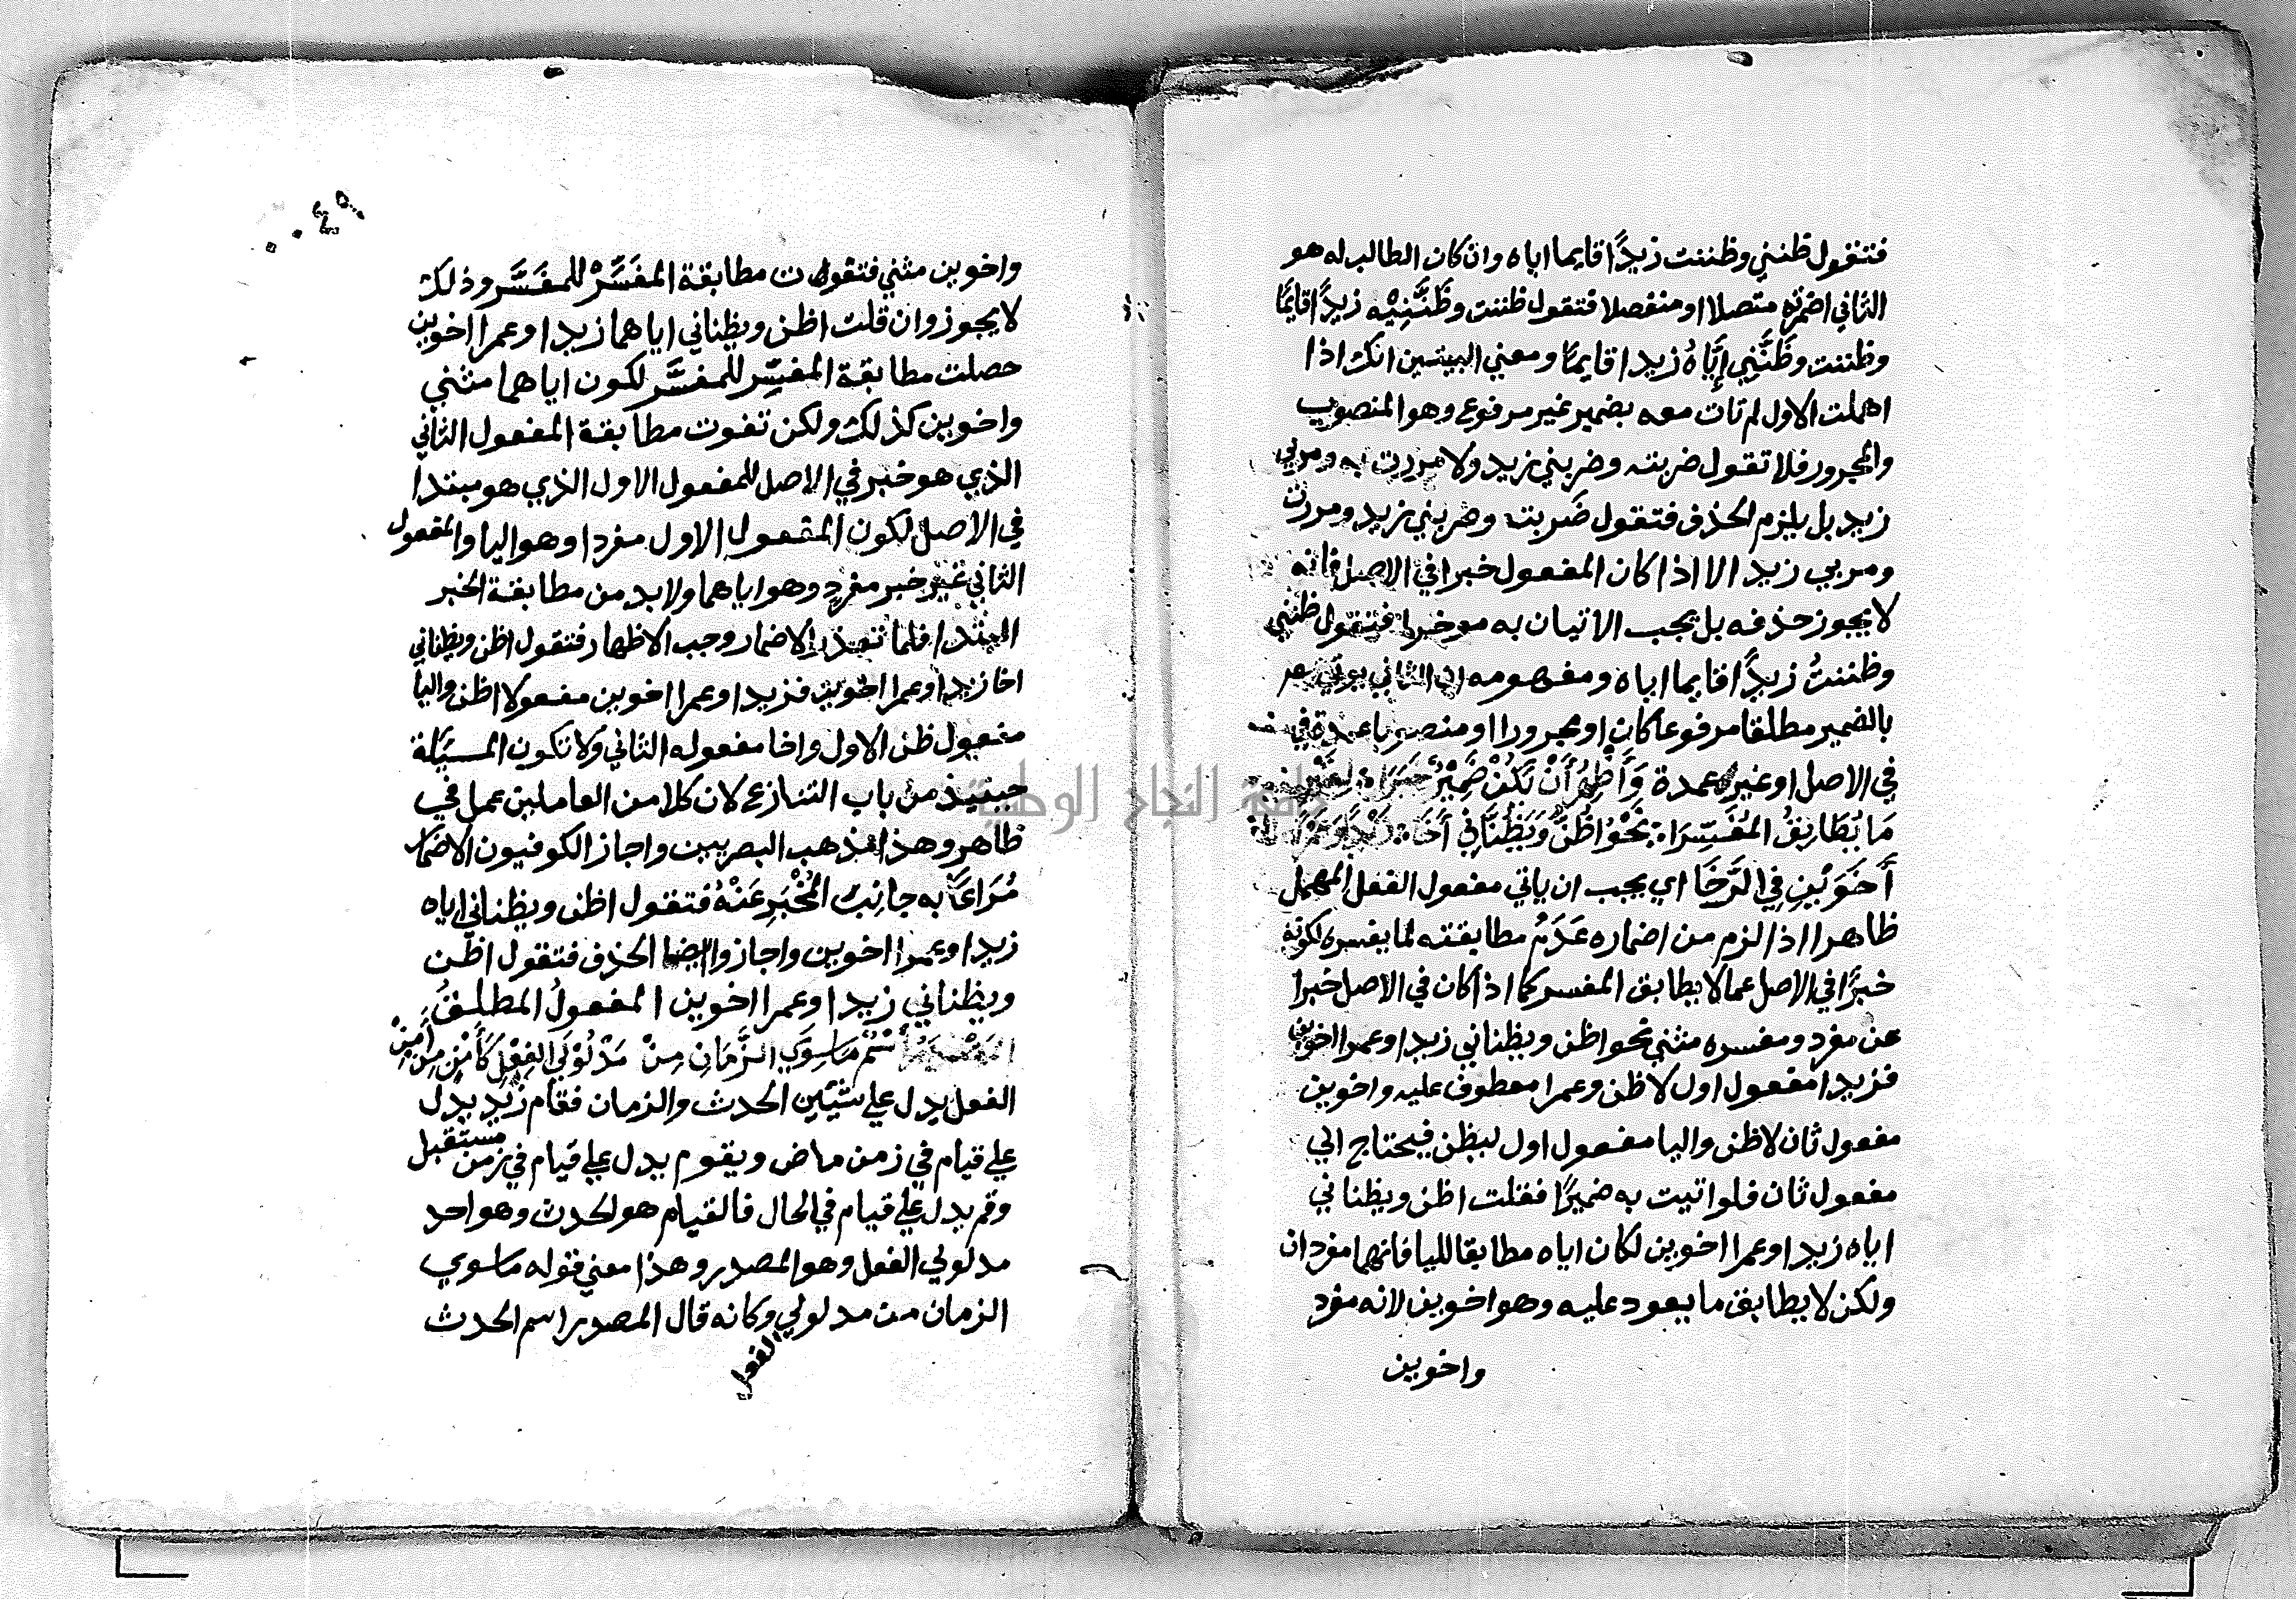 فتقول ظنني وظننت زيدًا قايما اياه وان كان الطالب له هو
الثاني اضمرته متصلا او منفصلا فتقول ظننت وظَنَّنِيْه زيدًا قايمًا
وظننت وظَنَّنِي إيَّاهُ زيدا قايمًا ومعني البيتين انك اذا
اهملت الاول لم تات معه بضمير غير مرفوع وهو المنصوب
والمجرور فلا تقول ضربته وضربني زيد ولا مررت به ومربي
زيد بل يلزم الحذف فتقول ضَربت وضربني زيد ومررت
ومربي زيد الا اذا كان المفعول خبرا في الاصل فانه
لا يجوز حذفه بل يجب الاتيان به موخرا فتقول ظنني
وظننتُ زيدًا قايما اياه ومفهومه ان الثاني يوتي معه
بالضمير مطلقا مرفوعا كان او مجرورا او منصوبا عمدة في
في الاصل او غير عمدة وَأَظْهِرْ أَنْ يَكُنْ ضَمِيْرٌ خَبَرَا لِغَيْرِ
مَا يُطَابِقُ المُفَسِّرَا نَحْوُ اظُنُّ وَيَظُنَّانِي أَخَا زَيْدًا وَعَمْرًا
أَخَوَيْنِ فِي الرَّخَا اي يجب ان ياتي مفعول الفعل المهمل
ظاهرا اذا لزم من اضماره عَدَمُ مطابقته لما يفسره لكونه
خبرًا في الاصل عما لا يطابق المفسر كما اذا كان في الاصل خبرا
عن مفرد ومفسره مثني نحو اظن ويظناني زيدا وعمرا اخوين
فزيدا مفعول اول لاظن وعمرا معطوف عليه واخوين
مفعول ثان لاظن واليا مفعول اول ليظن فيحتاج الي
مفعول ثان فلو اتيت به ضميرًا فقلت اظن ويظناني
اياه زيدا وعمرا اخوين لكان اياه مطابقا لليا فانهما مفردان
ولكن لا يطابق ما يعود عليه وهو اخوين لانه مفرد
واخوين
واخوين مثني فتفوت مطابقة المفَسِّرْ للمفَسَّر وذلك
لا يجوز وان قلت اظن ويظناني اياهما زيدا وعمرا اخوين
حصلت مطابقة المفسِّر للمفسَّر لكون اياهما مثني
واخوين كذلك ولكن تفوت مطابقة المفعول الثاني
الذي هو خبر في الاصل للمفعول الاول الذي هو مبتدا
في الاصل لكون المفعول الاول مفردا وهو اليا والمفعول
الثاني غير خبر مفرد وهو اياهما ولابد من مطابقة الخبر
المبتدا فلما تعذر الاضمار وجب الاظهار فتقول اظن ويظناني
اخا زيدا وعمرا اخوين فزيدا وعمرا اخوين مفعولا اظن واليا
مفعول ظن الاول واخا مفعوله الثاني ولا تكون المسيَلة
حينيذ من باب التنازع لان كلا من العاملين عمل في
ظاهر وهذا مذهب البصريين واجاز الكوفيون الاضمار
مُرَاعَاً به جانِبُ المُخْبَرِ عَنْهُ فتقول اظن ويظناني اياه
زيدا وعمرا اخوين واجازوا ايضا الحذف فتقول اظن
ويظناني زيدا وعمرا اخوين المفعولُ المطلقُ
المَصْدَرُ أسْمُ مَا سِوَي الزَّمَانِ مِنْ مَدْلُوْلَيِ الفِعْلِ كَأَمْنٍ مِنْ أَمِنْ
الفعل يدل علي شيئين الحدث والزمان فقام زيد يدل
علي قيام في زمن ماض ويقوم يدل علي قيام في زمن مستقبل
وقم يدل علي قيام في الحال فالقيام هو الحدث وهو احد
مدلولي الفعل وهو المصدر وهذا معني قوله ما سوي
الزمان من مدلولي وكانه قال المصدر اسم الحدث
الفعل
جامعة النجاح الوطنية